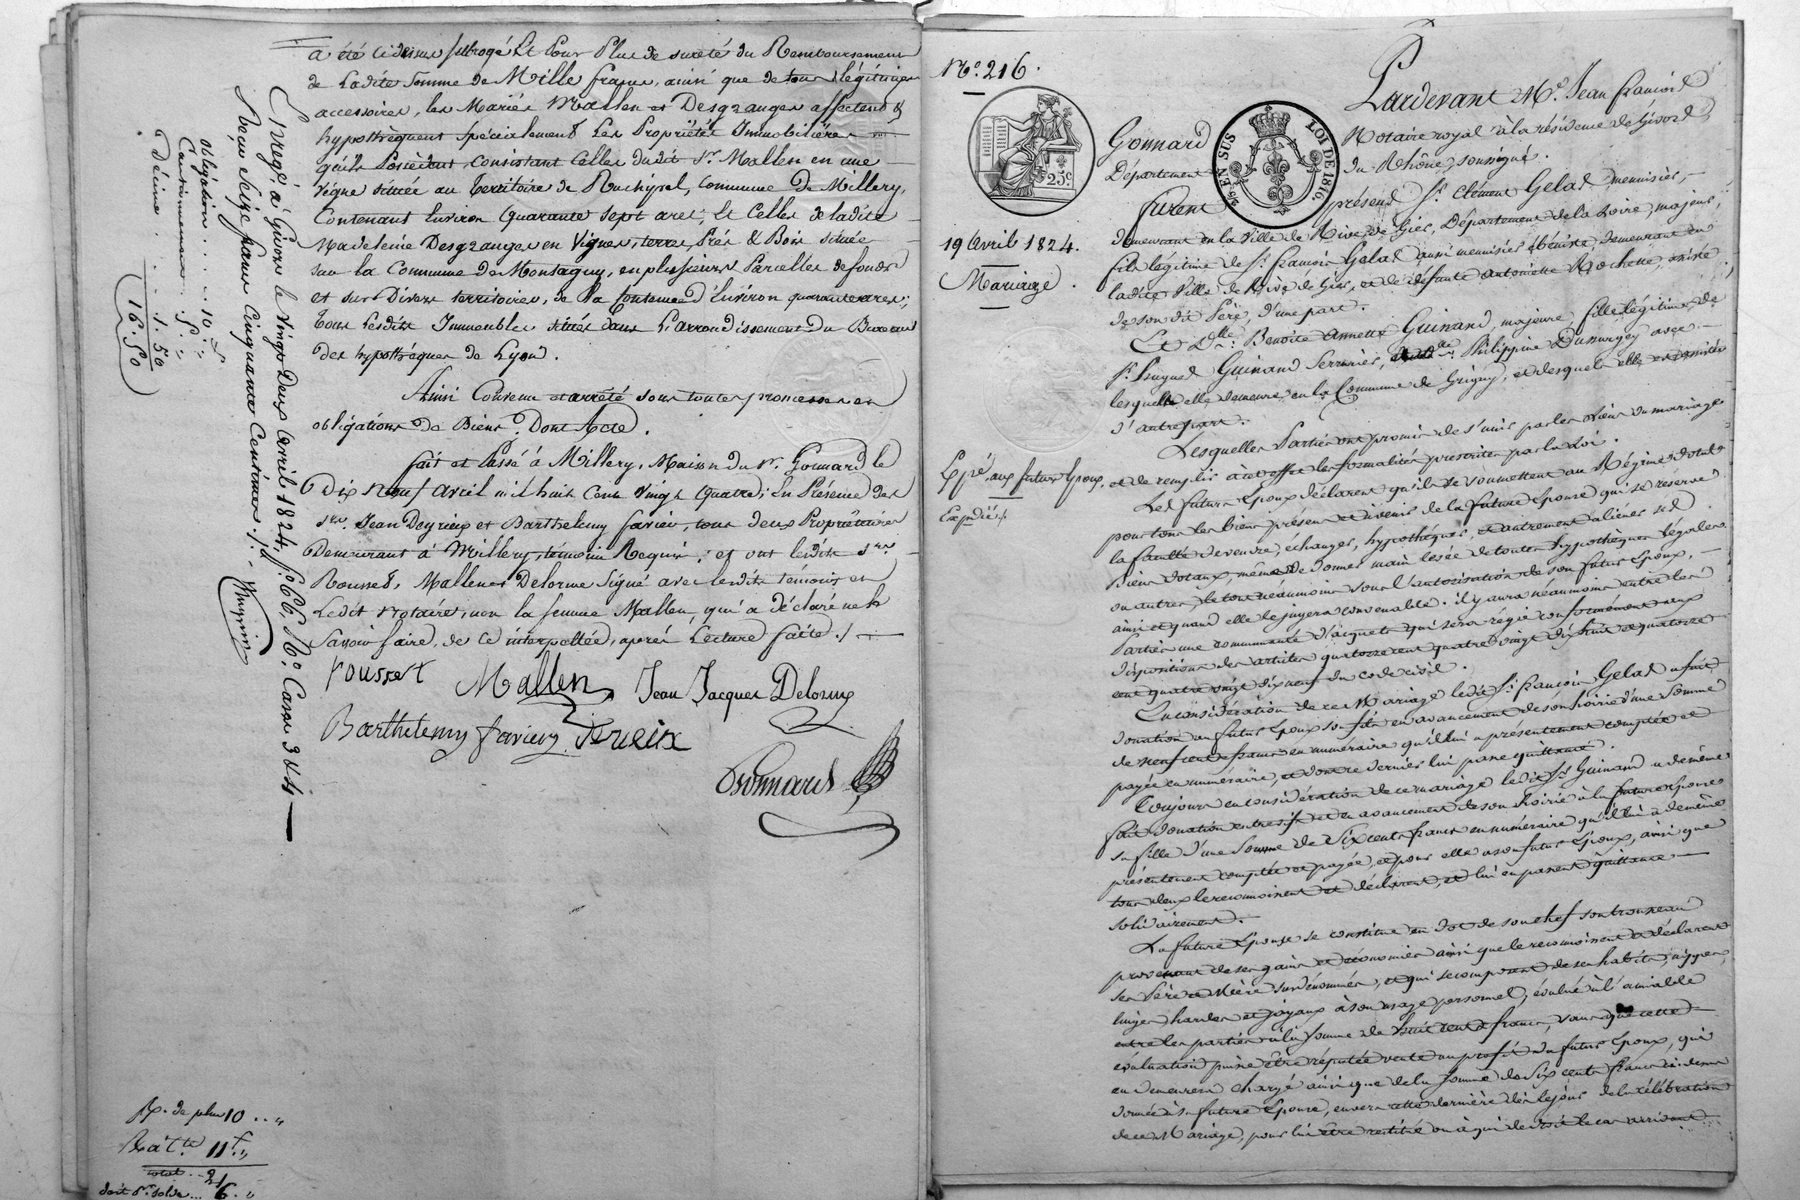 a été cidessus subrogé Et Pour Plus de sureté du Remboursement
de Ladite somme de Mille francs, ainsi que de tous légitimes
accessoires, les Mariés Mallen et Desgranges affectent &
hypothèquent spécialement les Propriétés Immobilières
qu'ils Possèdent Consistant Celles dudit Sr. Mallen en une
Vigne située au territoire de , Commune de Millery,
Contenant Environ Quarante Sept ares; Et Celles de ladite
Madeleine Desgranges en Vignes, terres, Prés & Bois située
sur la Commune de Montagny, en plusieurs Parcelles de fonds
et sur Divers territoires, de la Contenue d'Environ quarante ares;
tous lesdits Immeubles situés dans L'arrondissement du Bureau
des hypothèques de Lyon.
Ainsi Convenu et arrêté sous toutes promesses et
obligations de Biens. Dont Acte.
fait et Passé à Millery, Maison du Sr. Gonnard le
Dix Neuf avril mil huit Cent Vingt Quatre; En Présence des
Srs. Jean Deyrieux et Barthelemy favier, tous deux Propriétaires
Demeurant à Millery, témoins Requis; et ont lesdits Srs
Rousset, Mallen et Delorme Signé avec lesdits témoins et
Ledit Notaire, non la femme Mallen, qui a Déclaré ne le
Savoir faire, de ce interpellée, après Lecture faite./.
rousset Mallen Jean Jacques Delorme
Barthelemy favier
Gonnard
Enregé. à Givors le Vingt Deux avril 1824, fo. 66, No. Case 3 & 4
Reçu Seize francs Cinquante Centimes./.
obligation . . . 10. f
Cautionnement . . 5. "
Décime . . . 1. 50
16. 50
de plus 10 . . "
11 f. "
total . . 21
doit pr. solde . . . 6. "
No. 216.
25c
¼ EN SUS
LOI DE 1816.
19 Avril 1824.
Mariage.
Expé. aux futurs Epoux,
Expédié/.
Pardevant Me. Jean François
Gonnard Notaire royal à la résidence de Givors,
Département du Rhône, soussigné.
Furent présens Sr. Clément Gelas, menuisier,
demeurant en la Ville de Rive de Gier, Département de la Loire, majeur,
fils légitime de Sr. François Gelas aussi menuisier ébéniste, demeurant en
ladite Ville de Rive de Gier, et de défunte Antoinette Rochette, assisté
de son dit Père, d'une part.
Et Dlle. Benoite Annette Guinand, majeure fille légitime de
Sr. Hugues Guinand Serrurier, et de De. Philippine Dumurgey avec
lesquelles elle demeure en la Commune de Grigny, et desquels elle est assistée
d'autre part.
Lesquelles Parties ont promis de s'unir par les Liens du mariage
et de remplir à cet effet les formalités prescrites par la Loi.
Les futurs Epoux déclarent qu'ils se soumettent au Régime Dotal
pour tous les biens présens et à venir de la future Epouse qui se réserve
la faculté de vendre, échanger, hypothéquer, et autrement aliéner ses
Biens Dotaux, même de donner main levée de toutes hypothèques légales
ou autres, le tout néanmoins sous l'autorisation de son futur Epoux,
ainsi et quand elle le jugera convenable. il y aura néanmoins entre les
Parties une communauté d'acquets qui sera régie conformément aux
dispositions des articles quatorze cent quatre vingt dix huit et quatorze
cent quatre vingt dix neuf du code civil.
En considération de ce Mariage ledit Sr. François Gelas a fait
donation au futur Epoux son fils en avancement de son hoirie d'une Somme
de neuf cent francs en numéraire qu'il lui a présentement comptée et
payée en numéraire, et dont ce dernier lui passe quittance.
Toujours en considération de ce mariage ledit Sr. Guinand a de même
fait donation entrevifs et en avancement de son hoirie à la future Epouse
sa fille d'une Somme de Six cents francs en numéraire qu'il lui a de même
présentement comptée et payée, et pour elle à son futur Epoux, ainsi que
tous deux le reconnoissent et déclarent, et lui en passent quittance
solidairement.
La future Epouse se constitue en dot de son chef son trousseau
provenant de ses gains et économies ainsi que le reconnoissent et déclarent
ses Père et Mère surnommés, et qui se composent de ses habits, nippes,
linges, hardes et joyaux à son usage personnel, évalué à l'amiable
entre les parties à la somme de huit cents francs, sans que cette
évaluation puisse être réputée vente au profit du futur Epoux, qui
en demeurera chargé ainsi que de la Somme de Six cents francs ci dessus
donnée à la future Epouse, envers cette dernière dès le jour de la célébration
de ce Mariage, pour lui être restitué ou à qui de droit le cas arrivant